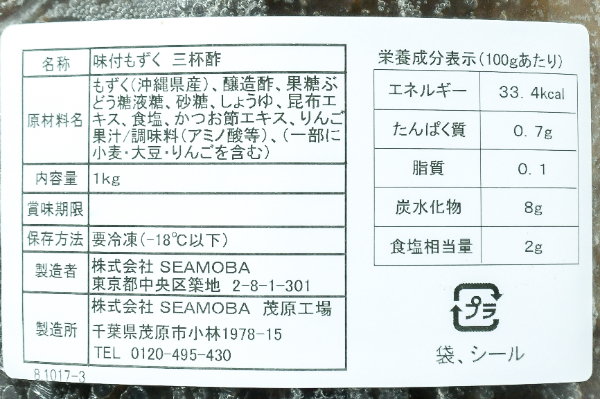 名称 味付もずく 三杯酢
原材料名 もずく(沖縄県産)、醸造酢、果糖ぶ
どう糖液糖、砂糖、しょうゆ、昆布エ
キス、食塩、かつお節エキス、りんご
果汁/調味料(アミノ酸等)、(一部に
小麦・大豆・りんごを含む)
内容量 1kg
賞味期限
保存方法 要冷凍(-18℃以下)
製造者 株式会社 SEAMOBA
東京都中央区築地 2-8-1-301
製造所 株式会社 SEAMOBA 茂原工場
千葉県茂原市小林1978-15
TEL 0120-495-430
81017-3
栄養成分表示(100gあたり)
エネルギー 33.4kcal
たんぱく質 0.7g
脂質 0.1
炭水化物 8g
食塩相当量 2g
プラ
袋、シール